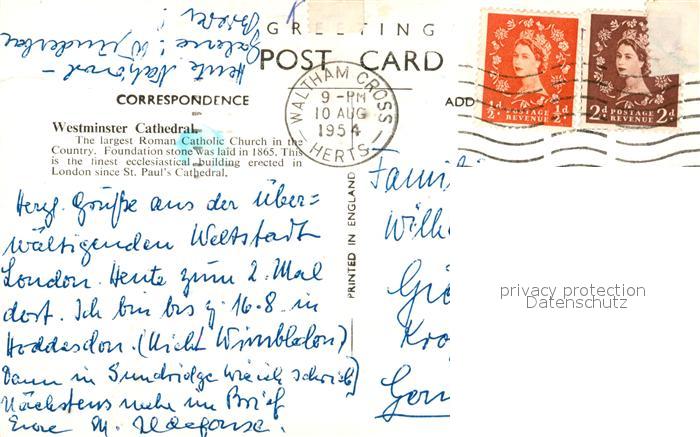 Heute National-
Galerie! Wunderbare
Bilder!
GREETING
POST CARD
CORRESPONDENCE
ADD
Westminster Cathedral.
The largest Roman Catholic Church in the
Country. Foundation stone was laid in 1865. This
is the finest ecclesiastical building erected in
London since St. Paul's Cathedral.
WALTHAM CROSS
9-PM
10 AUG
1954
HERTS
½d. POSTAGE REVENUE ½d.
2d. POSTAGE REVENUE 2d.
PRINTED IN ENGLAND
Herzl. Grüße aus der über=
wältigenden Weltstadt
London. Heute zum 2. Mal
dort. Ich bin bis z. 16.8. in
Hoddesdon. (Nicht Wimbledon)
Dann in Sundridge wie ich schrieb)
Nächstens mehr im Brief
Eure M. Ildefonsa.
Fami
Wilh
Kro
privacy protection
Datenschutz